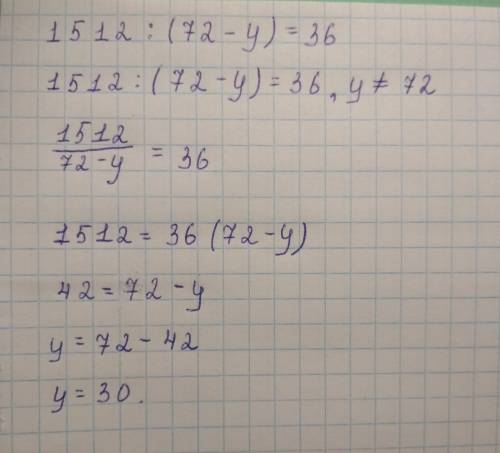 1512 : (72 - y) = 36
1512 : (72 - y) = 36, y ≠ 72
1512/72 - y = 36
1512 = 36 (72 - y)
42 = 72 - y
y = 72 - 42
y = 30.